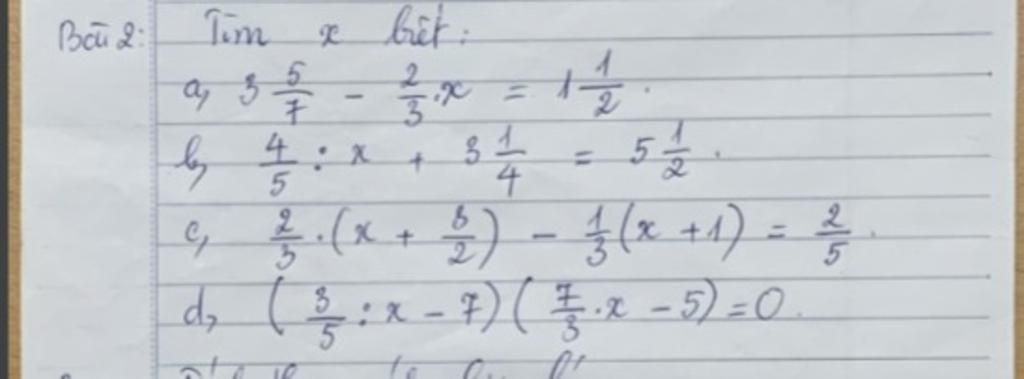 Bài 2: Tìm x biết:
a, 3 5/7 - 2/3 . x = 1 1/2 .
b, 4/5 : x + 3 1/4 = 5 1/2 .
c, 2/3 . (x + 3/2) - 1/3 (x + 1) = 2/5 .
d, (3/5 : x - 7) (7/3 . x - 5) = 0 .